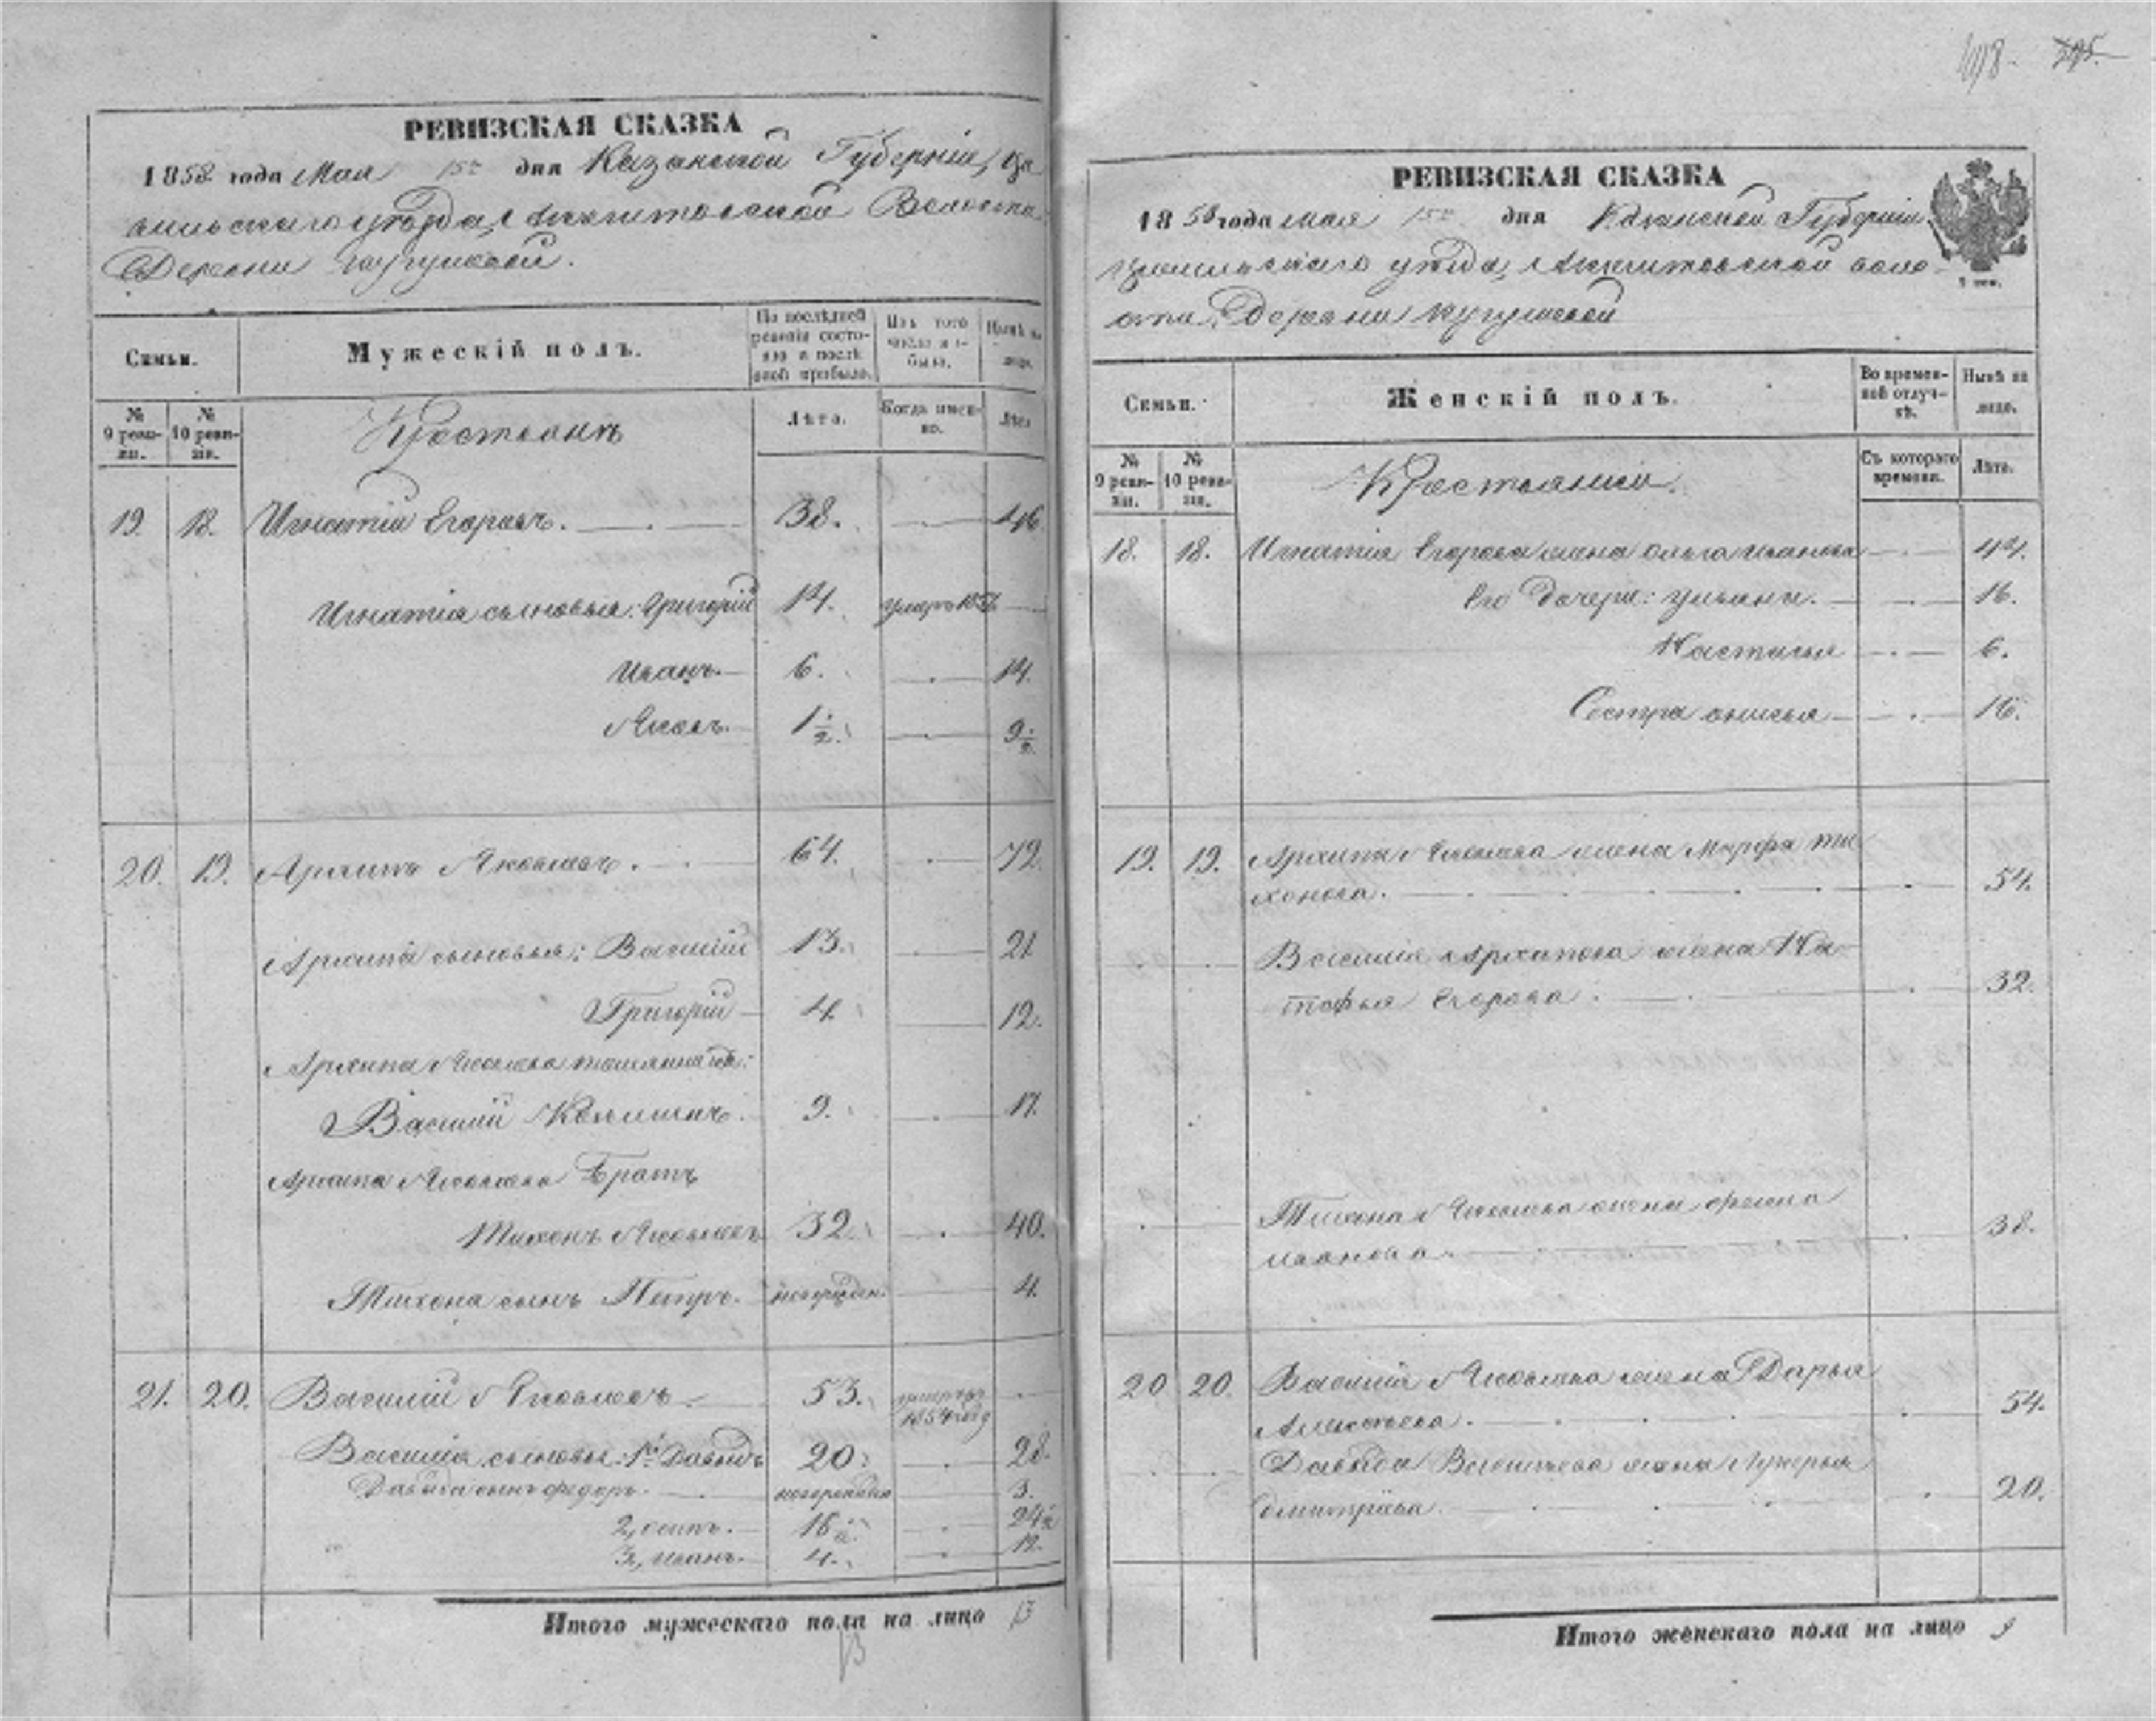 РЕВИЗСКАЯ СКАЗКА
1858 года Мая 15го дня Казанской Губерніи, Ци
вильскаго уѣзда, Волости
Деревни
Семьи.
Мужескій полъ.
По послѣдней ревизіи состояло и послѣ оной прибыло.
Изъ того числа выбыло.
Нынѣ на лицо.
№ 9 ревизіи.
№ 10 ревизіи.
Крестьянъ
Лѣта.
Когда именно.
Лѣта.
19. 18. Игнатій Егоровъ. 38. 46
Игнатія сыновья: Григорій 14. умеръ
Иванъ. 6. 14.
Яковъ. 1 1/2. 9 1/2.
20. 19. Архипъ Яковлевъ. 64. 72.
Архипа сыновья: Василій 13. 21
Григорій 4. 12.
Архипа Яковлева
Василій 9. 17.
Архипа Яковлева Братъ
Тихонъ Яковлевъ 32. 40.
Тихона сынъ Петръ. новорожден. 4.
21. 20. Василій Яковлевъ 53. умеръ
1854 году
Василія сыновья: 1й Давыдъ 20. 28.
Давыда сынъ Федоръ. новорожден 3.
2, осипъ. 16 1/2. 24 1/2
3, Иванъ. 4. 12.
Итого мужескаго пола на лицо 13
13
408. 395.
РЕВИЗСКАЯ СКАЗКА
1858 года мая 15го дня Казанской Губерніи
Цивильскаго уѣзда, воло
сти, Деревни
Семьи.
Женскій полъ.
Во временной отлучкѣ.
Нынѣ на лицо.
№ 9 ревизіи.
№ 10 ревизіи.
Съ котораго времени.
Лѣта.
18. 18. Игнатія Егорова жена Ольга Иванова 44.
Его дочери: Ульяна. 16.
Настасья 6.
Сестра 16.
19. 19. Архипа Яковлева жена Марфа Ти
хонова. 54.
Василія Архипова жена
Егорова. 32.
Тихона Яковлева жена
Иванова. 38.
20 20. Василія Яковлева жена Дарья
Алексѣева. 54.
Давыда Васильева жена Лукерья
Дмитріева. 20.
Итого женскаго пола на лицо 9